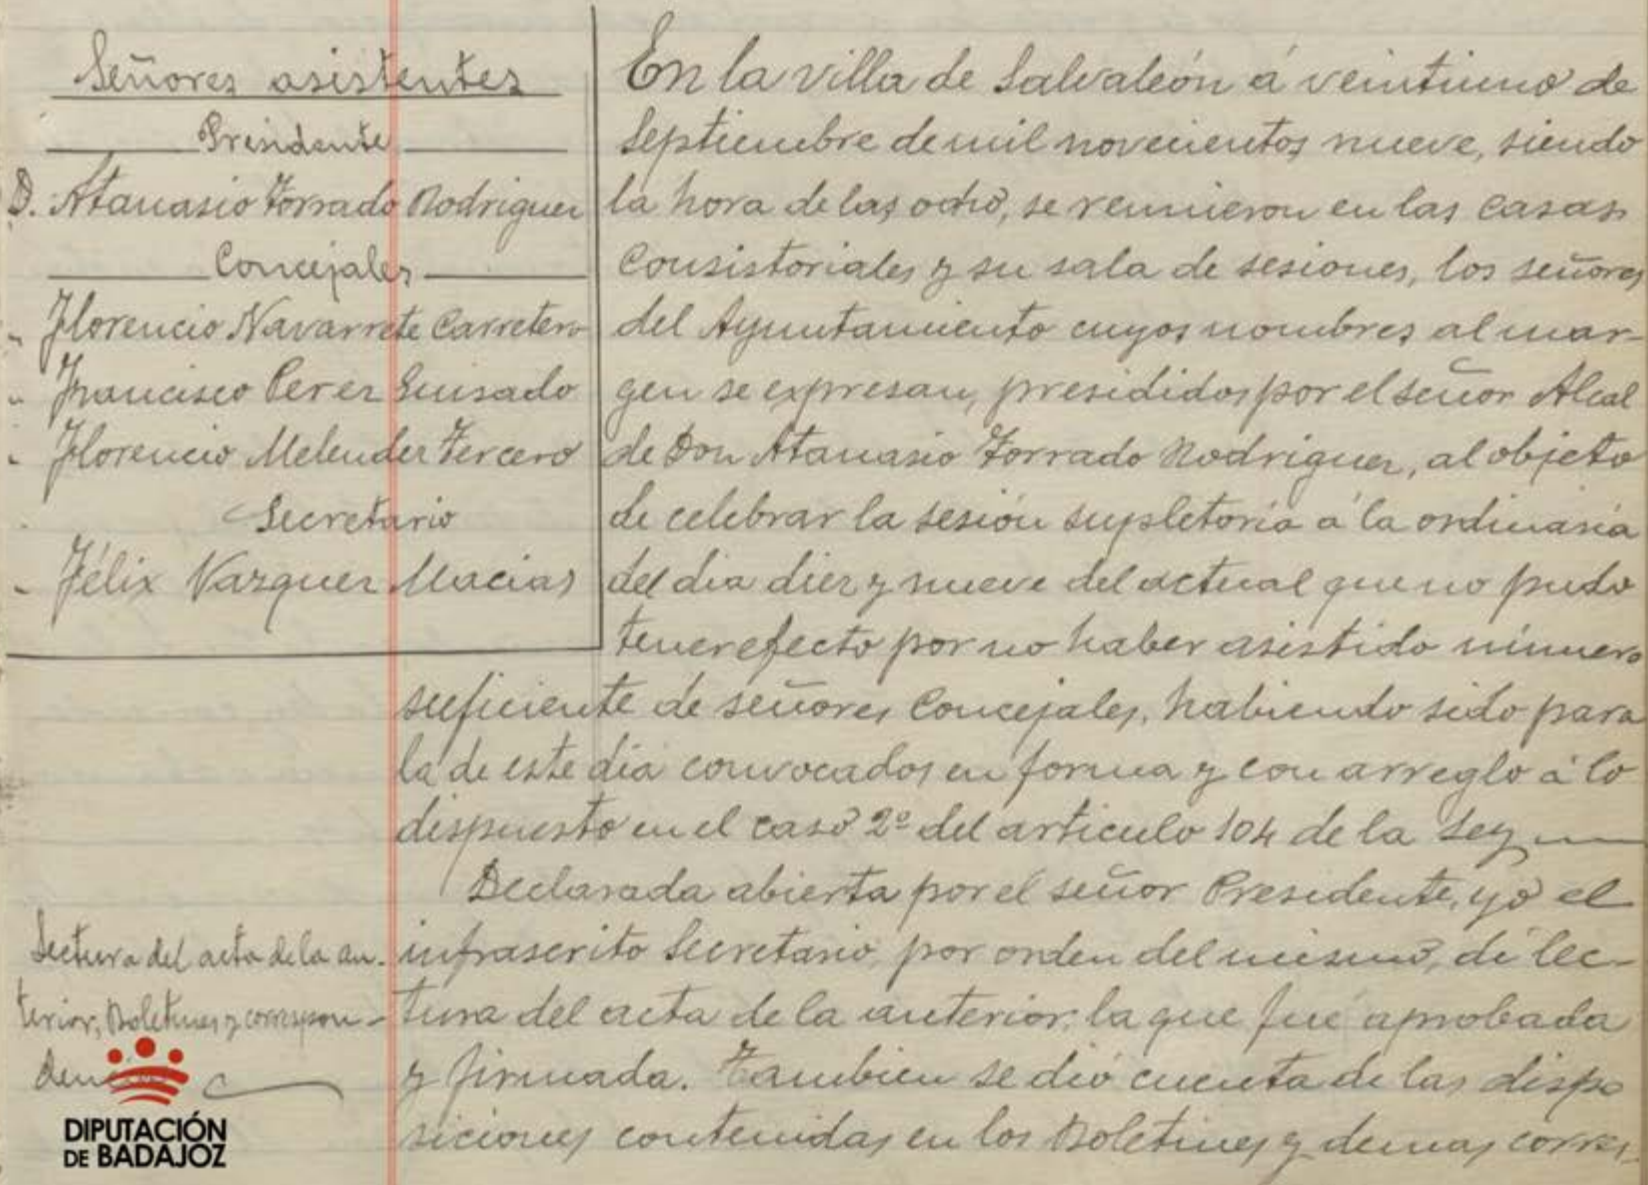 Señores asistentes
Presidente
D. Atanasio Torrado Rodriguez
Concejales
" Florencio Navarrete Carretero
" Francisco Perez Guisado
" Florencio Melendez Tercero
Secretario
" Félix Vazquez Macias
En la villa de Salvaleón á veintiuno de
Septiembre de mil novecientos nueve, siendo
la hora de las ocho, se reunieron en las casas
Consistoriales y su sala de sesiones, los señores
del Ayuntamiento cuyos nombres al mar-
gen se expresan, presididos por el señor Alcal
de Don Atanasio Torrado Rodriguez, al objeto
de celebrar la sesión supletoria á la ordinaria
del dia diez y nueve del actual que no pudo
tener efecto por no haber asistido número
suficiente de señores Concejales, habiendo sido para
la de este dia convocados en forma y con arreglo á lo
dispuesto en el caso 2º del articulo 104 de la Ley
Declarada abierta por el señor Presidente, yo el
infrascrito Secretario, por orden del mismo, dí lec-
tura del acta de la anterior; la que fué aprobada
y firmada. Tambien se dió cuenta de las dispo
siciones contenidas en los Boletines y demas corres-
Lectura del acta de la an-
terior, Boletines y correspon-
dencia
DIPUTACIÓN
DE BADAJOZ